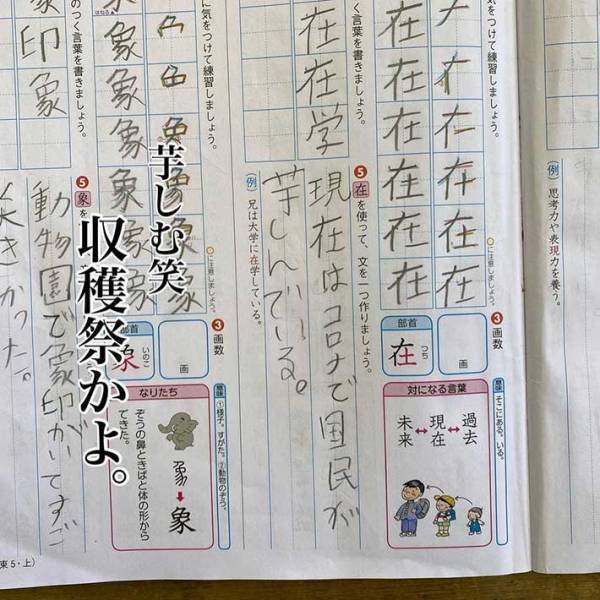 （例）思考力や表現力を養う。
気をつけて練習しましょう。
に注意しましょう。
❸画数
画
部首
つち
在
意味
そこにある。いる。
対になる言葉
過去↔現在↔未来
在
在
在
在
在
在
在
在
在
在
在
在学
❺在を使って、文を一つ作りましょう。
現在はコロナで国民が
芋しんでいる。
（例）兄は大学に在学している。
に気をつけて練習しましょう。
に注意しましょう。
❸画数
画
部首
いのこ
象
意味
①様子。すがた。②動物のぞう。
なりたち
象
ぞうの鼻ときばと体の形から
できた。
象
象
象
象
象
のつく言葉を書きましょう。
印象
❺象を
動物園で象印がいてすご
きかった。
芋しむ笑
収穫祭かよ。
東5・上）